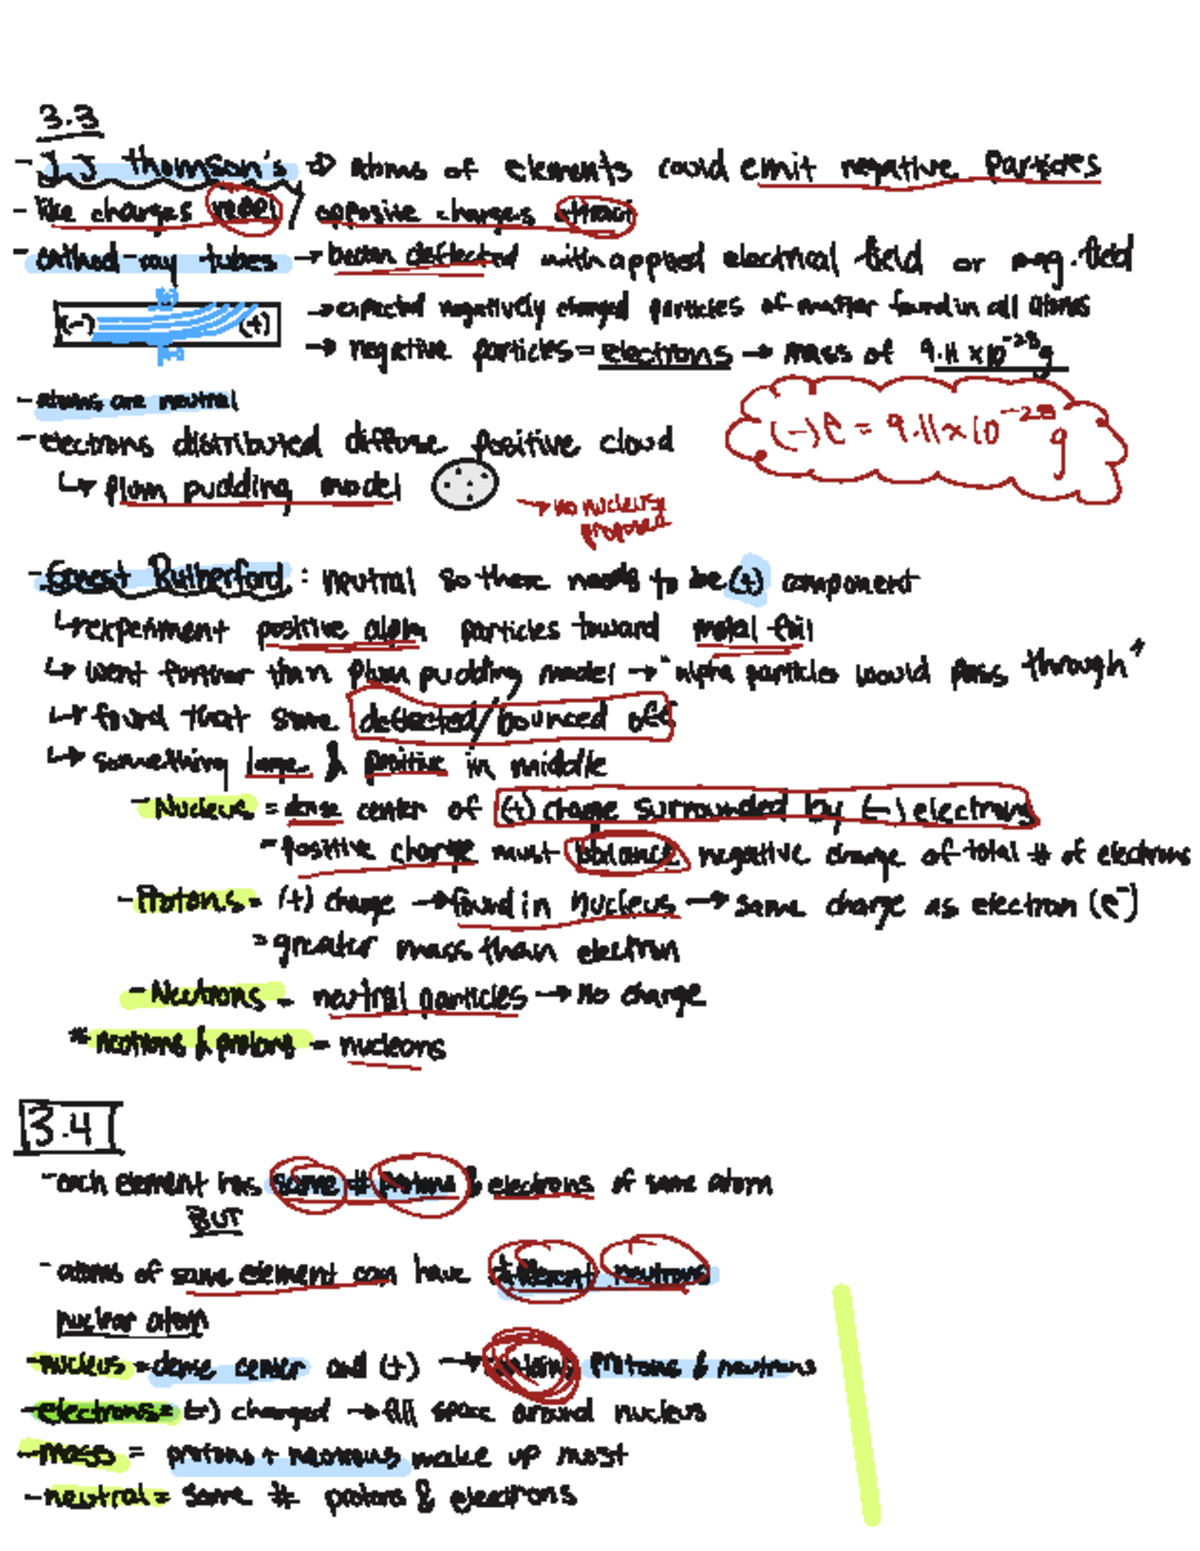 3.3
- J.J thomson's → atoms of elements could emit negative particles
- like charges repel / opposive charges attract
- cathod-ray tubes → beam deflected with applied electrical field or mag. field
(-) (+)
→ expected negatively charged particles of matter found in all atoms
→ negative particles = electrons → mass of 9.11 x10⁻²⁸g
- atoms are neutral
(-) e = 9.11 x 10⁻²⁸ g
- electrons distributed diffuse positive cloud
↳ plum pudding model
→ no nucleus proposed
- Ernest Rutherford : neutral so there needs to be (+) component
↳ experiment positive alpha particles toward metal foil
↳ went further than plum pudding model → "alpha particles would pass through"
↳ found that some deflected/bounced off
↳ something large & positive in middle
- Nucleus = dense center of (+) charge surrounded by (-) electrons
- positive charge must balance negative charge of total # of electrons
- Protons = (+) charge → found in nucleus → same charge as electron (e⁻)
= greater mass than electron
- Neutrons = neutral particles → no charge
* neutrons & protons = nucleons
3.4
- each element has same # protons & electrons of same atom
BUT
- atoms of same element can have different neutrons
nuclear atom
- nucleus = dense center and (+) → protons & neutrons
- electrons = (-) charged → fill space around nucleus
- mass = protons + neutrons make up most
- neutral = same # protons & electrons